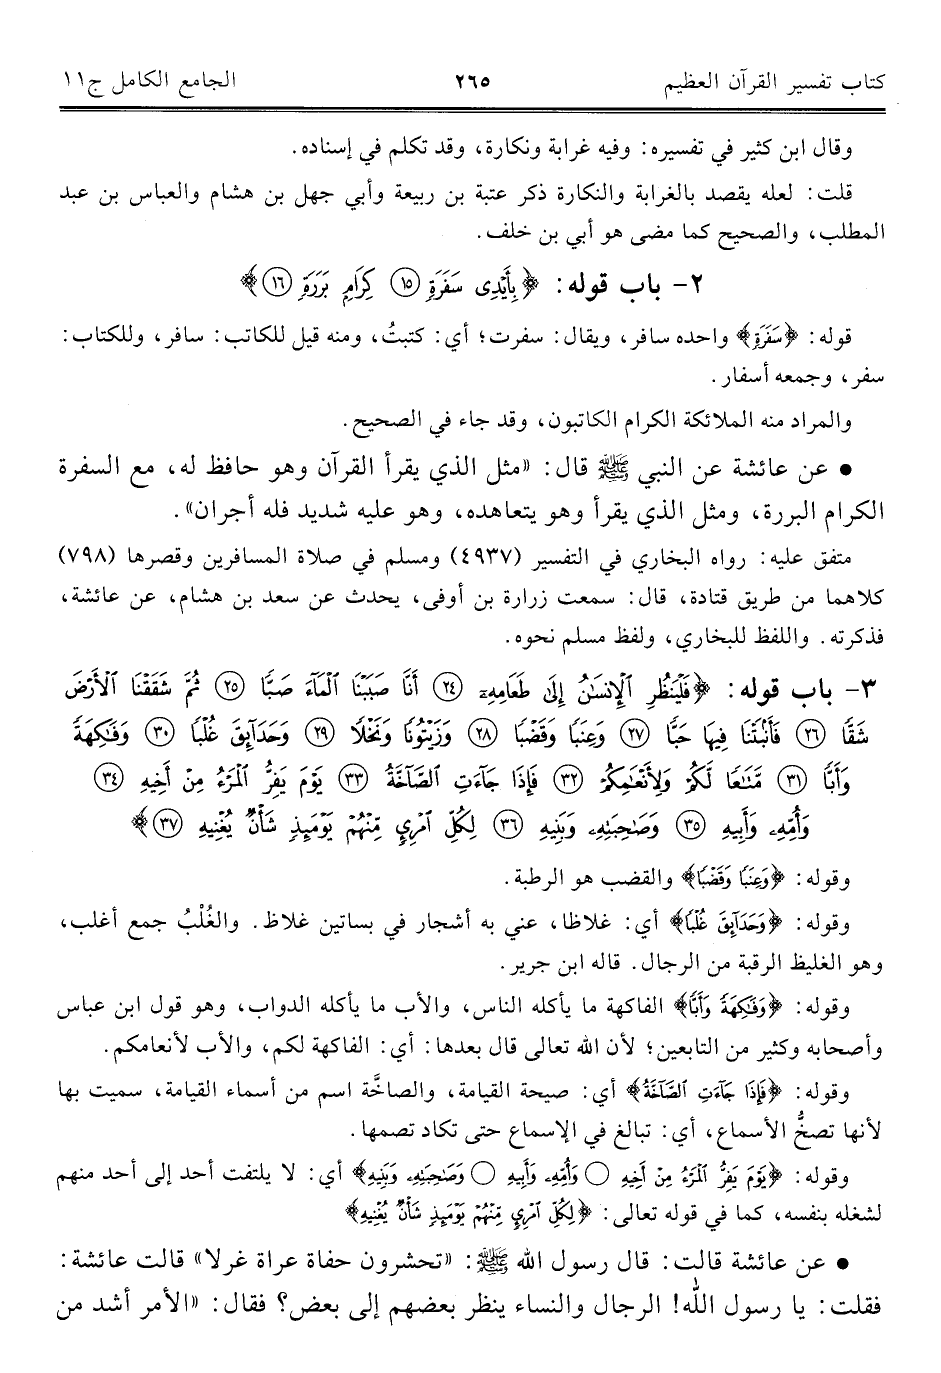 كتاب تفسير القرآن العظيم ٢٦٥ الجامع الكامل ج١١
وقال ابن كثير في تفسيره: وفيه غرابة ونكارة، وقد تكلم في إسناده.
قلت: لعله يقصد بالغرابة والنكارة ذكر عتبة بن ربيعة وأبي جهل بن هشام والعباس بن عبد
المطلب، والصحيح كما مضى هو أبي بن خلف.
٢- باب قوله: ﴿بِأَيْدِى سَفَرَةٍ ⑮ كِرَامٍ بَرَرَةٍ ⑯﴾
قوله: ﴿سَفَرَةٍ﴾ واحده سافر، ويقال: سفرت؛ أي: كتبتُ، ومنه قيل للكاتب: سافر، وللكتاب:
سفر، وجمعه أسفار.
والمراد منه الملائكة الكرام الكاتبون، وقد جاء في الصحيح.
• عن عائشة عن النبي ﷺ قال: «مثل الذي يقرأ القرآن وهو حافظ له، مع السفرة
الكرام البررة، ومثل الذي يقرأ وهو يتعاهده، وهو عليه شديد فله أجران».
متفق عليه: رواه البخاري في التفسير (٤٩٣٧) ومسلم في صلاة المسافرين وقصرها (٧٩٨)
كلاهما من طريق قتادة، قال: سمعت زرارة بن أوفى، يحدث عن سعد بن هشام، عن عائشة،
فذكرته. واللفظ للبخاري، ولفظ مسلم نحوه.
٣- باب قوله: ﴿فَلْيَنظُرِ ٱلْإِنسَٰنُ إِلَىٰ طَعَامِهِۦٓ ٢٤ أَنَّا صَبَبْنَا ٱلْمَآءَ صَبًّا ٢٥ ثُمَّ شَقَقْنَا ٱلْأَرْضَ
شَقًّا ٢٦ فَأَنۢبَتْنَا فِيهَا حَبًّا ٢٧ وَعِنَبًا وَقَضْبًا ٢٨ وَزَيْتُونًا وَنَخْلًا ٢٩ وَحَدَآئِقَ غُلْبًا ٣٠ وَفَٰكِهَةً
وَأَبًّا ٣١ مَّتَٰعًا لَّكُمْ وَلِأَنْعَٰمِكُمْ ٣٢ فَإِذَا جَآءَتِ ٱلصَّآخَّةُ ٣٣ يَوْمَ يَفِرُّ ٱلْمَرْءُ مِنْ أَخِيهِ ٣٤
وَأُمِّهِۦ وَأَبِيهِ ٣٥ وَصَٰحِبَتِهِۦ وَبَنِيهِ ٣٦ لِكُلِّ ٱمْرِئٍ مِّنْهُمْ يَوْمَئِذٍ شَأْنٌ يُغْنِيهِ ٣٧﴾
وقوله: ﴿وَعِنَبًا وَقَضْبًا﴾ والقضب هو الرطبة.
وقوله: ﴿وَحَدَآئِقَ غُلْبًا﴾ أي: غلاظا، عني به أشجار في بساتين غلاظ. والغُلْبُ جمع أغلب،
وهو الغليظ الرقبة من الرجال. قاله ابن جرير.
وقوله: ﴿وَفَٰكِهَةً وَأَبًّا﴾ الفاكهة ما يأكله الناس، والأب ما يأكله الدواب، وهو قول ابن عباس
وأصحابه وكثير من التابعين؛ لأن الله تعالى قال بعدها: أي: الفاكهة لكم، والأب لأنعامكم.
وقوله: ﴿فَإِذَا جَآءَتِ ٱلصَّآخَّةُ﴾ أي: صيحة القيامة، والصاخَّة اسم من أسماء القيامة، سميت بها
لأنها تصخُّ الأسماع، أي: تبالغ في الإسماع حتى تكاد تصمها.
وقوله: ﴿يَوْمَ يَفِرُّ ٱلْمَرْءُ مِنْ أَخِيهِ ○ وَأُمِّهِۦ وَأَبِيهِ ○ وَصَٰحِبَتِهِۦ وَبَنِيهِ﴾ أي: لا يلتفت أحد إلى أحد منهم
لشغله بنفسه، كما في قوله تعالى: ﴿لِكُلِّ ٱمْرِئٍ مِّنْهُمْ يَوْمَئِذٍ شَأْنٌ يُغْنِيهِ﴾
• عن عائشة قالت: قال رسول الله ﷺ: «تحشرون حفاة عراة غرلا» قالت عائشة:
فقلت: يا رسول الله! الرجال والنساء ينظر بعضهم إلى بعض؟ فقال: «الأمر أشد من